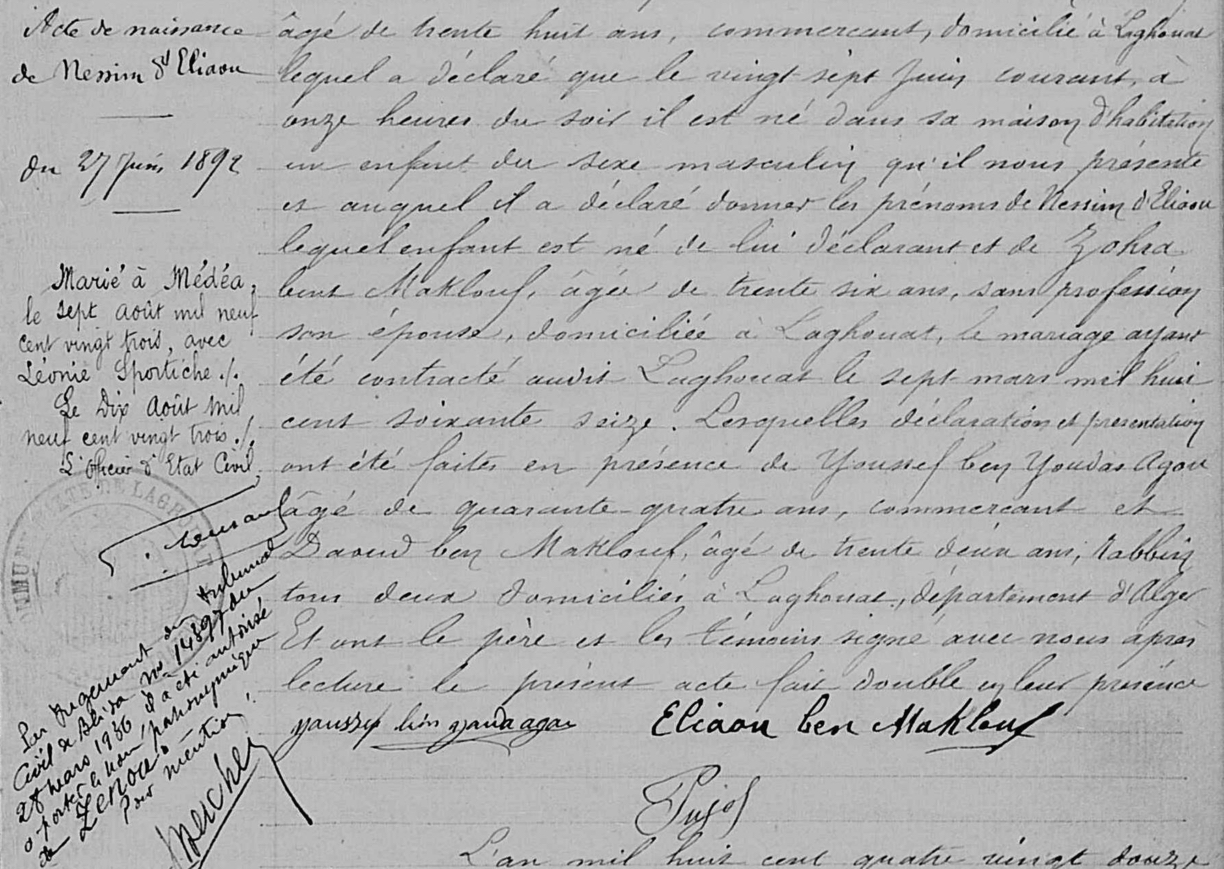 Acte de naissance
de Nessim dt Eliaou
du 27 Juin 1892
Marié à Médéa,
le sept Août mil neuf
cent vingt trois, avec
Léonie Sportiche ./.
Le Dix Août mil
neuf cent vingt trois ./.
L'Officier d'Etat Civil
Par Jugement du tribunal
civil de Blida no 1489 du
28 mars 1936 il a été autorisé
à porter le nom patronymique
de Zenou
Pour mention
âgé de trente huit ans, commercant, domicilié à Laghouat
lequel a déclaré que le vingt sept Juin courant, à
onze heures du soir il est né dans sa maison d'habitation
un enfant du sexe masculin qu'il nous présente
et auquel il a déclaré donner les prénoms de Nessim d'Eliaou
lequel enfant est né de lui déclarant et de Zohra
bent Maklouf, âgée de trente six ans, sans profession
son épouse, domiciliée à Laghouat, le mariage ayant
été contracté audit Laghouat le sept mars mil huit
cent soixante seize. Lesquelles déclaration et présentation
ont été faites en présence de Youssef ben Youdas Agou
âgé de quarante-quatre ans, commercant et
Daoud ben Maklouf, âgé de trente deux ans, Rabbin
tous deux domiciliés à Laghouat, département d'Alger
Et ont le père et les témoins signé avec nous après
lecture le présent acte fait double en leur présence
Eliaou ben Maklouf
Pujol
L'an mil huit cent quatre vingt douze